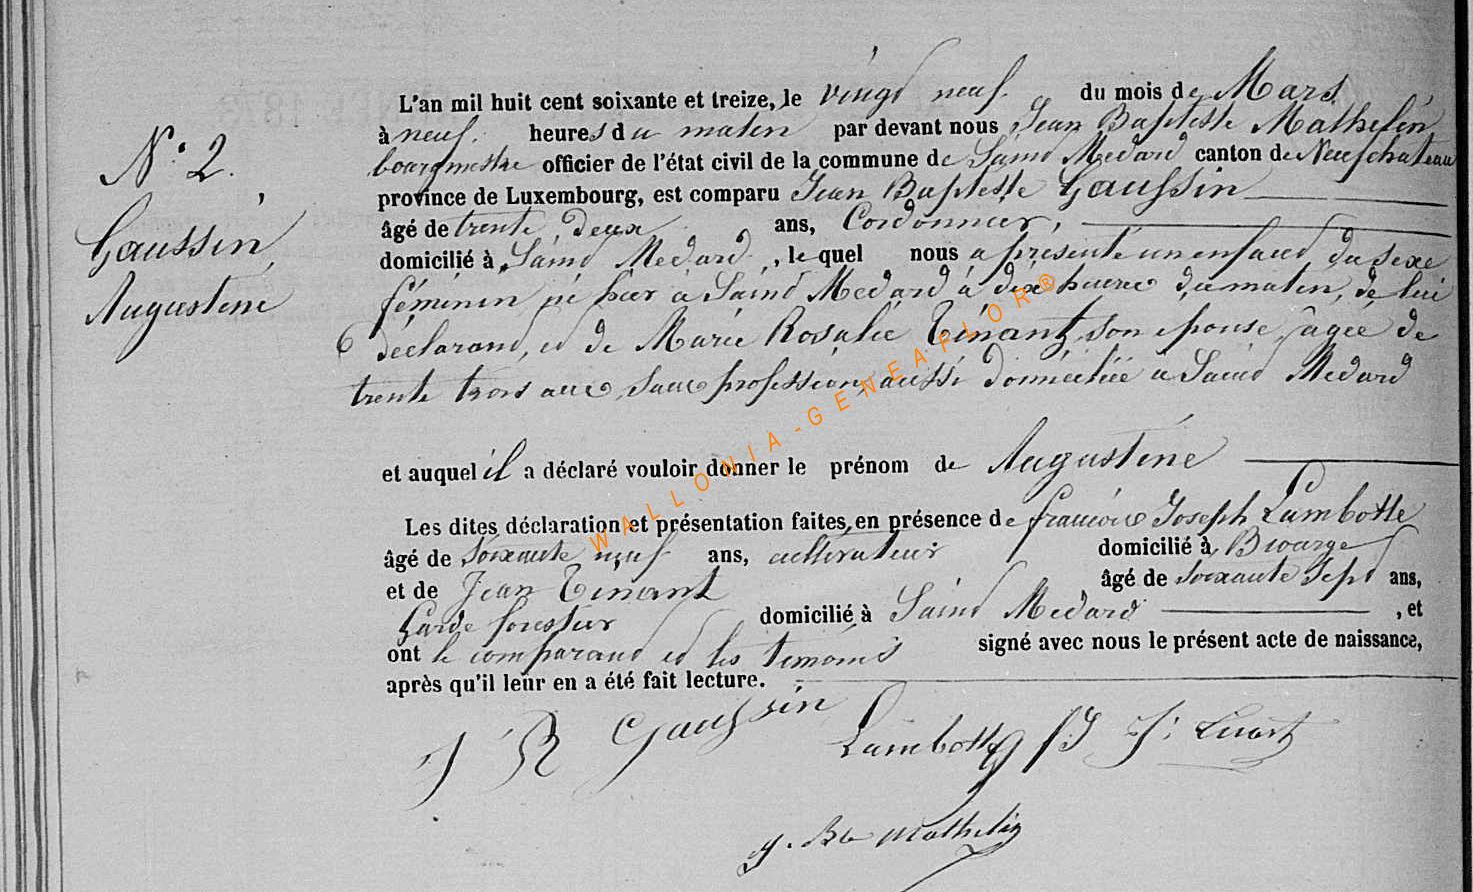 N.° 2.
Gaussin,
Augustine
L'an mil huit cent soixante et treize, le vingt neuf. du mois de Mars
à neuf. heures du matin par devant nous Jean Baptiste Mathelin
bourgmestre officier de l'état civil de la commune de Saint Médard canton de Neufchateau
province de Luxembourg, est comparu Jean Baptiste Gaussin
âgé de trente deux ans, Cordonnier,
domicilié à Saint Medard, le quel nous a présenté un enfant du sexe
féminin né hier à Saint Médard à dix heures du matin, de lui
déclarant, et de Marie Rosalie Tinant, son épouse, âgée de
trente trois ans, sans profession, aussi domiciliée à Saint Médard
et auquel il a déclaré vouloir donner le prénom de Augustine
Les dites déclaration et présentation faites, en présence de françois Joseph Lambotte
âgé de soixante neuf ans, cultivateur domicilié à
et de Jean Tinant âgé de soixante sept ans,
Garde forestier domicilié à Saint Médard, et
ont le comparant et les témoins signé avec nous le présent acte de naissance,
après qu'il leur en a été fait lecture.
J B Gaussin Lambotte f J J. Tinant
J. Bte Mathelin
WALLONIA-GENEAFLOR®